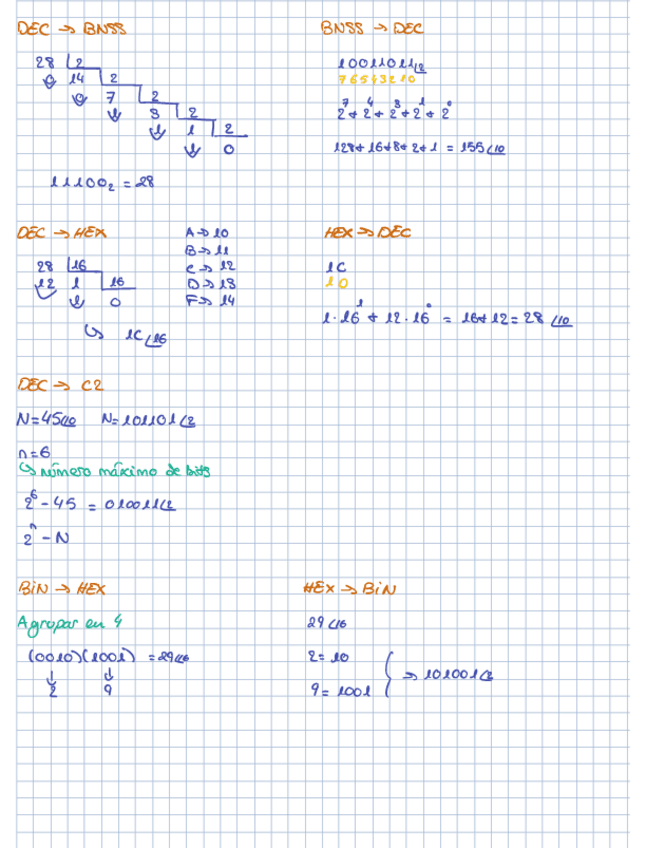 DEC → BNSS
28 2
0 14 2
0 7 2
1 3 2
1 1 2
1 0
11100₂ = 28
BNSS → DEC
10011011(2
76543210
2⁷ + 2⁴ + 2³ + 2¹ + 2⁰
128+16+8+2+1 = 155(10
DEC → HEX
28 16
12 1 16
1 0
↳ 1C(16
A → 10
B → 11
C → 12
D → 13
F → 14
HEX → DEC
1C
10
1·16¹ + 12·16⁰ = 16+12 = 28(10
DEC → C2
N=45(10 N=101101(2
n=6
↳ número máximo de bits
2⁶ - 45 = 010011(2
2ⁿ - N
BiN → HEX
Agrupar en 4
(0010)(1001) = 29(16
↓ ↓
2 9
HEX → BiN
29(16
2=10
9=1001
→ 101001(2